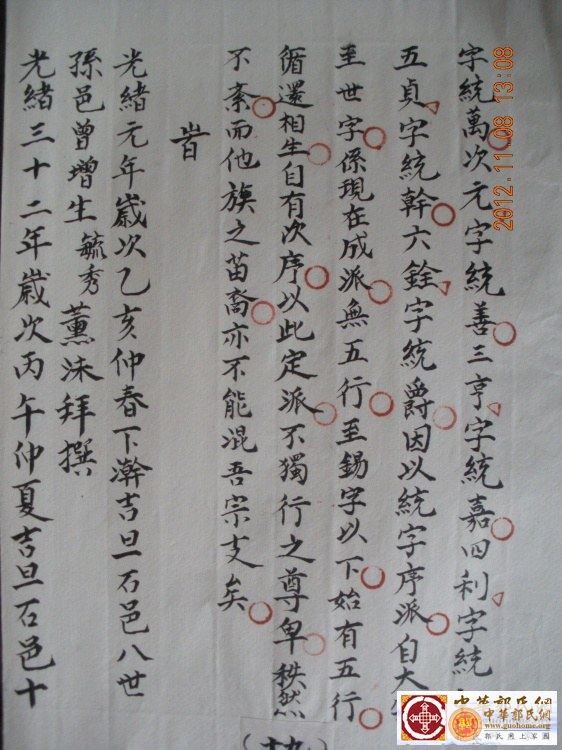 字統萬次元字統善三亨字統嘉四利字統
五貞字統幹六銓字統爵因以統字序派自大
至世字係現在成派無五行至錫字以下始有五行
循還相生自有次序以此定派不獨行之尊卑秩然
不紊而他族之苗裔亦不能混吾宗支矣
旹
光緒元年歲次乙亥仲春下澣吉旦石邑八世
孫邑曾增生毓秀薰沐拜撰
光緒三十二年歲次丙午仲夏吉旦石邑十
十九
2012.11.08 13:08
中華郭氏網
中華郭氏網
www.guohome.org
郭氏網上家園